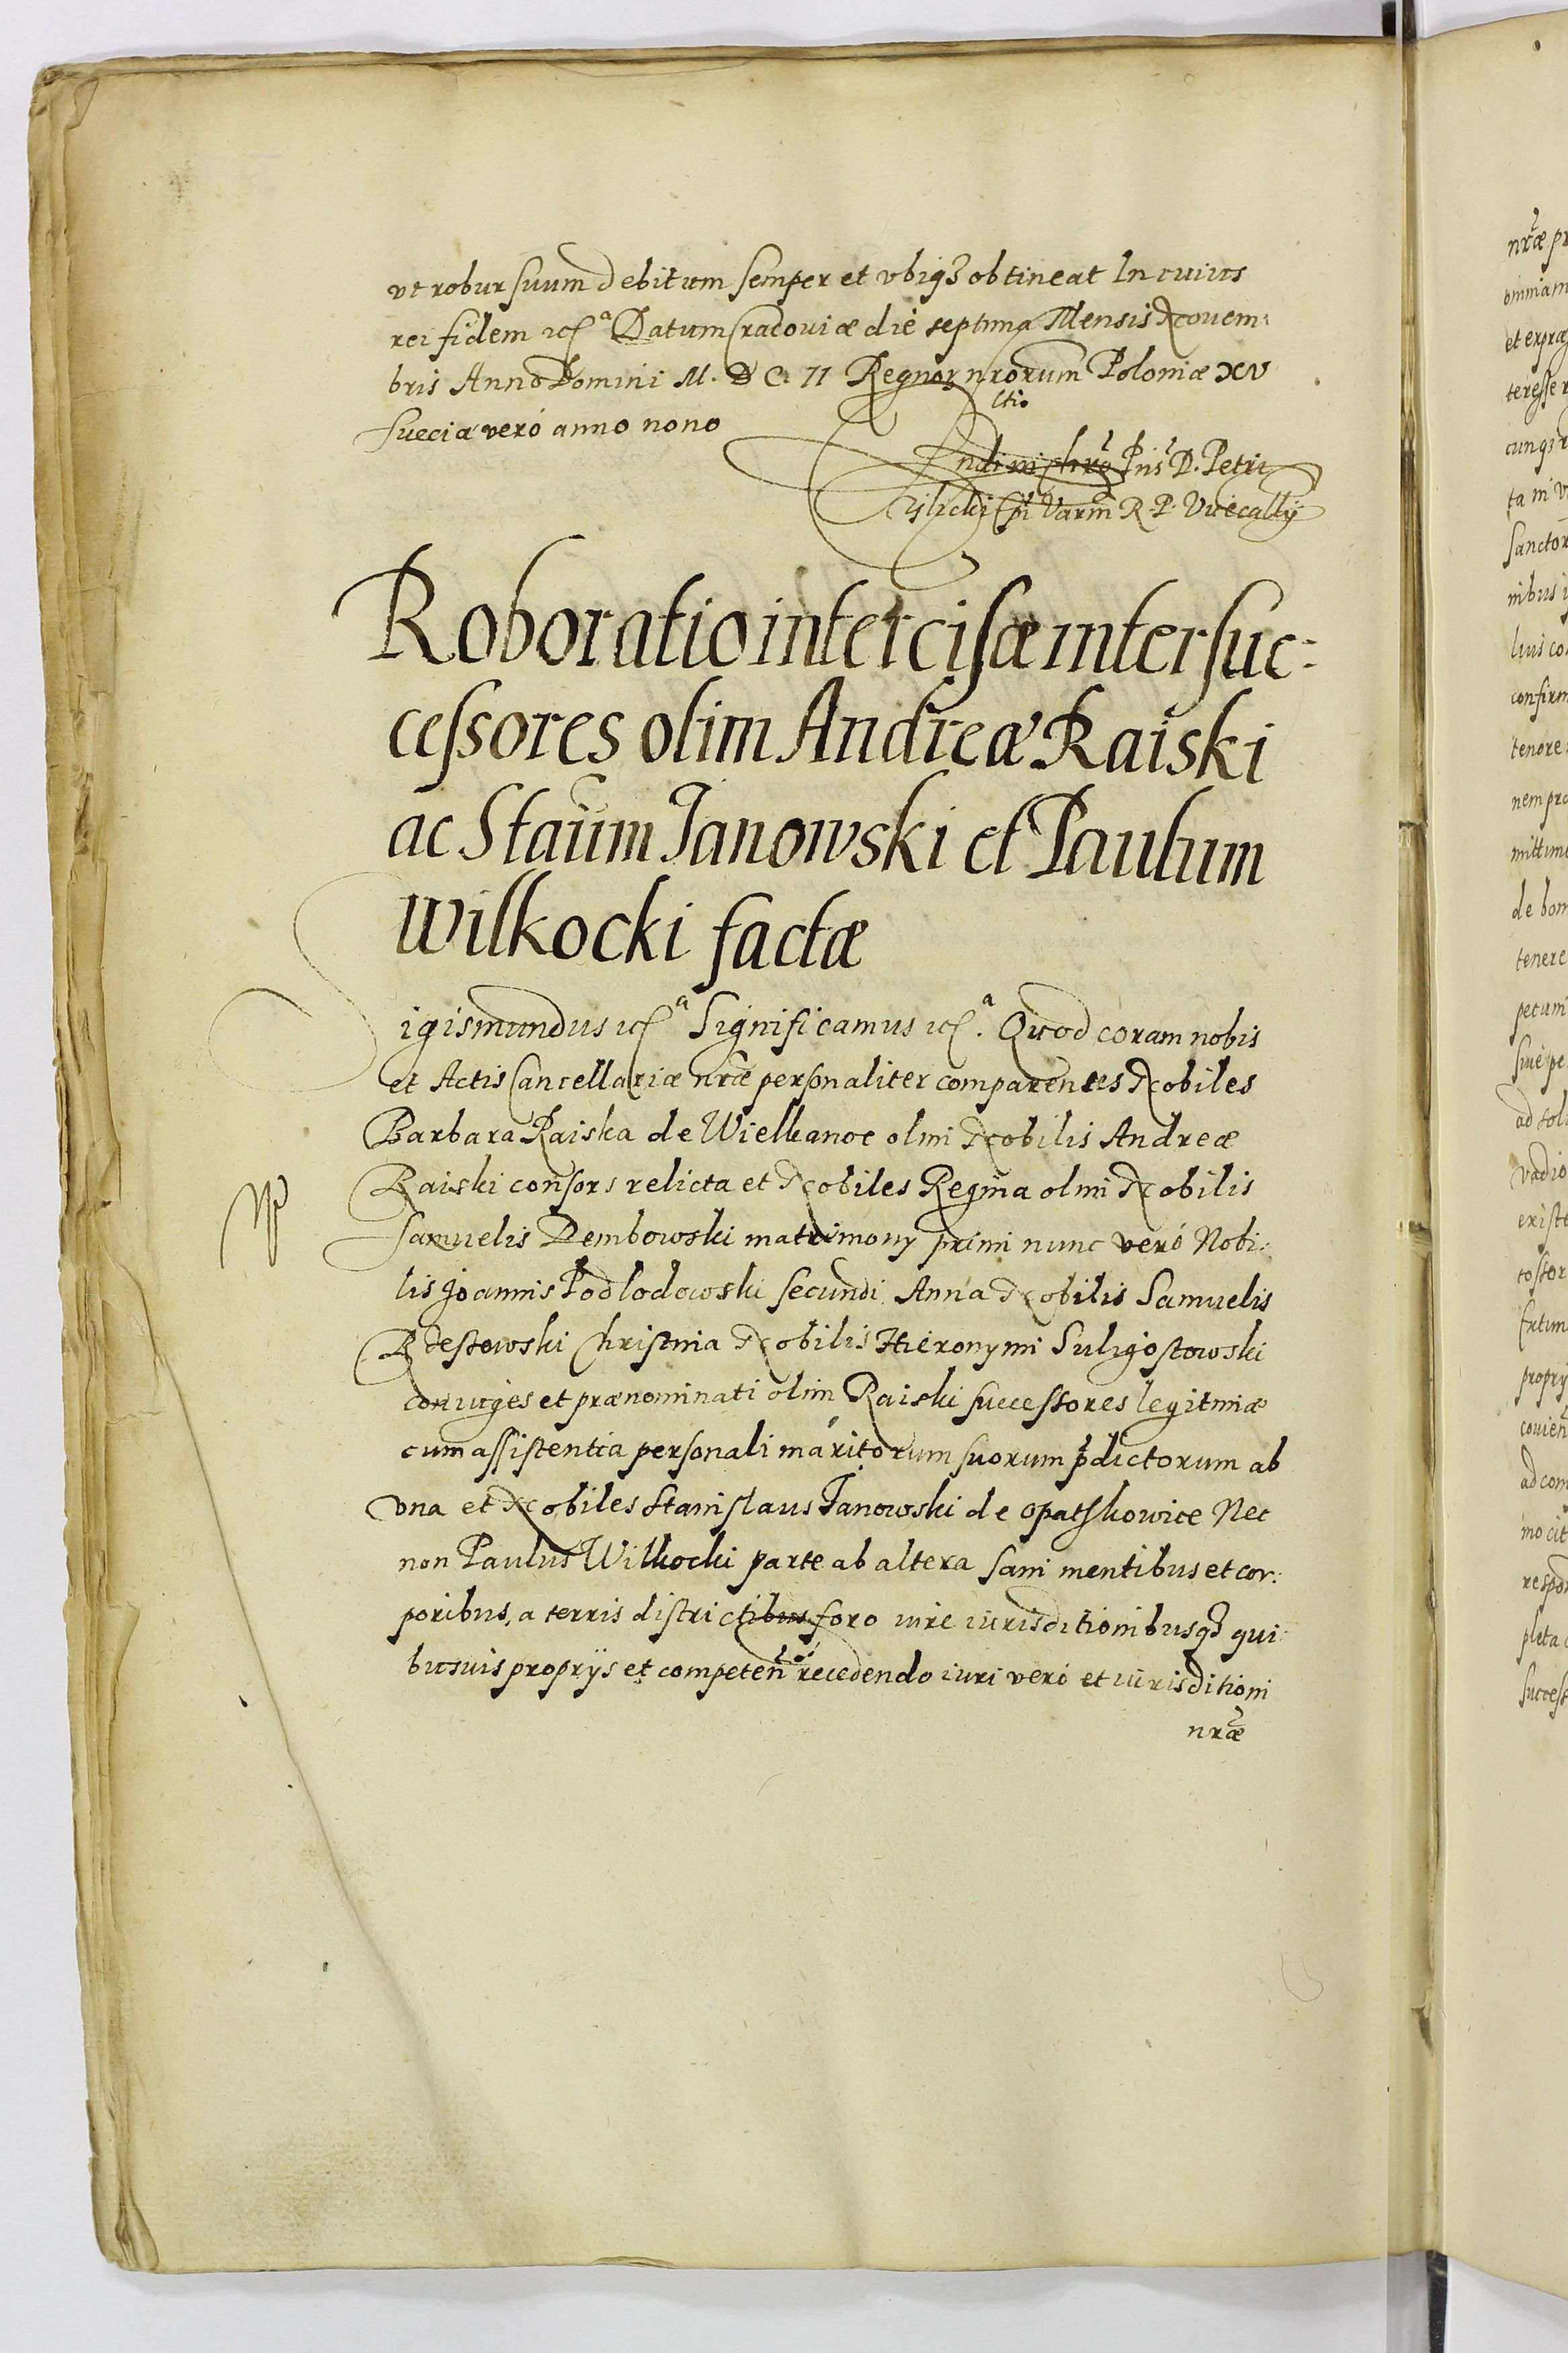 vt robur suum debitum semper et vbiqз obtineat In cuius
rei fidem etcª Datum Cracouiæ die septima Mensis Nouem:
bris Anno Domini M. D C. II Regnor nrorum Poloniæ XV
Sueciæ veró anno nono
Ptri D. Petri
Tylicki Epi Varm R. P. Vicecallÿ
Roboratio intercisæ inter suc:
cessores olim Andreæ Raiski
ac Staūm Janowski et Paulum
Wilkocki factæ
Sigismundus etcª Significamus etcª. Quod coram nobis
et Actis Cancellariæ nræ personaliter comparentes Nobiles
Barbara Raiska de Wielkanoc olim Nobilis Andreæ
Raiski consors relicta et Nobiles Regina olim Nobilis
Samuelis Dembowski matrimony primi nunc veró Nobi:
lis Joannis Podlodowski secundi. Anna Nobilis Samuelis
Rdestowski Christina Nobilis Hieronymi Suligostowski
coniuges et prænominati olim Raiski successores legitimæ
cum assistentia personali maritorum suorum pdictorum ab
vna et Nobiles Stanislaus Janowski de Opatskowice Nec
non Paulus Wilkocki parte ab altera sani mentibus et cor:
poribus, a terris districtibus foro iure iurisditionibusqз qui
busuis proprÿs et competen recedendo iuri veró et iurisditioni
nræ
nræ pr
et expræ
teresse r
cunqз
ta in v
Sanctor
nibus i
lius co
confirm
tenore
nem pro
mittim
de bon
tenere
pecuni
siue pe
ad sol
vadio
existe
propry
ad com
mo cit
respon
pleta
success